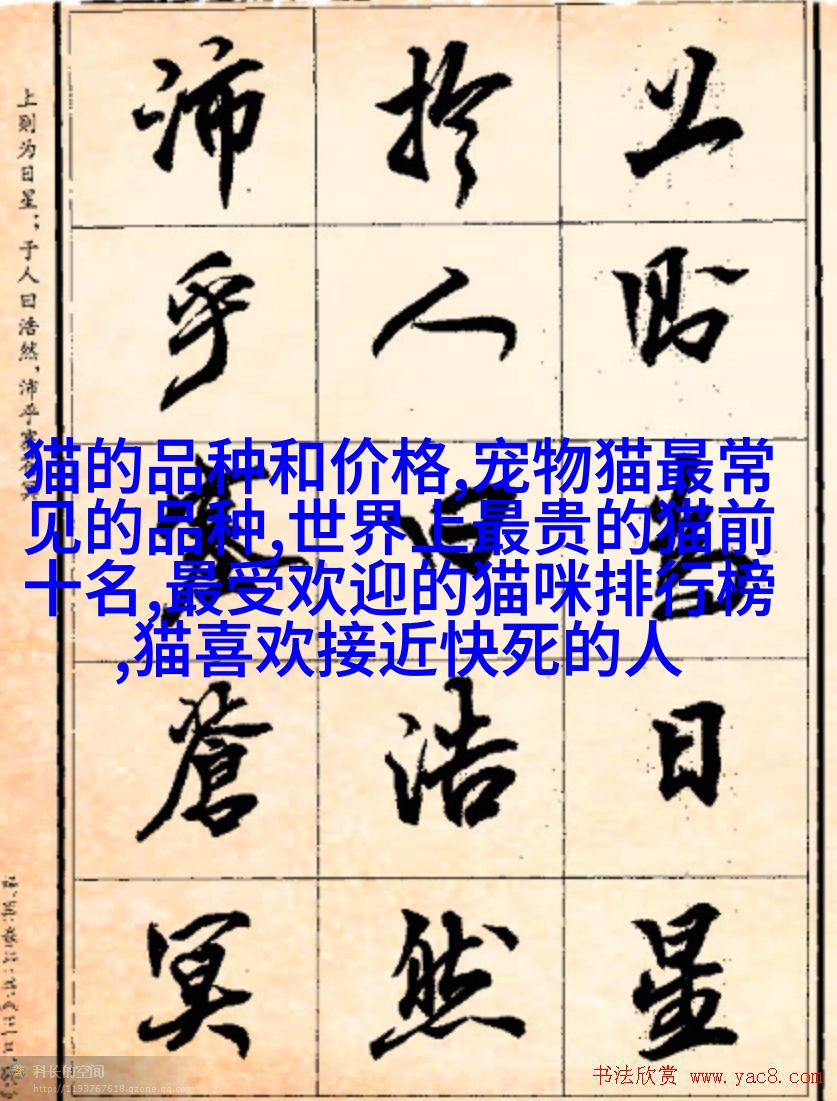 上則為日星
於人曰浩然
沛乎塞蒼冥
上则为日星；于人曰浩然，沛乎塞
猫的品种和价格,宠物猫最常
见的品种,世界上最贵的猫前
十名,最受欢迎的猫咪排行榜
,猫喜欢接近快死的人
科长的空间
http://1193767618.qzone.qq.com
书法欣赏 www.yac8.com